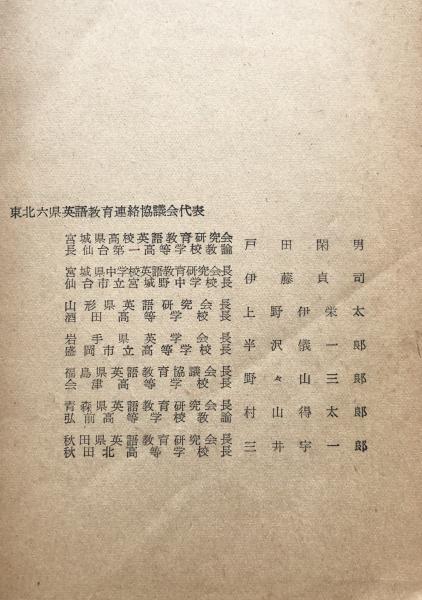 東北六県英語教育連絡協議会代表
宮城県高校英語教育研究会
長仙台第一高等学校教諭 戸田閑男
宮城県中学校英語教育研究会長
仙台市立宮城野中学校長 伊藤貞司
山形県英語研究会長
酒田高等学校長 上野伊栄太
岩手県英学会長
盛岡市立高等学校長 半沢儀一郎
福島県英語教育協議会長
会津高等学校長 野々山三郎
青森県英語教育研究会長
弘前高等学校教諭 村山得太郎
秋田県英語教育研究会長
秋田北高等学校長 三井宇一郎